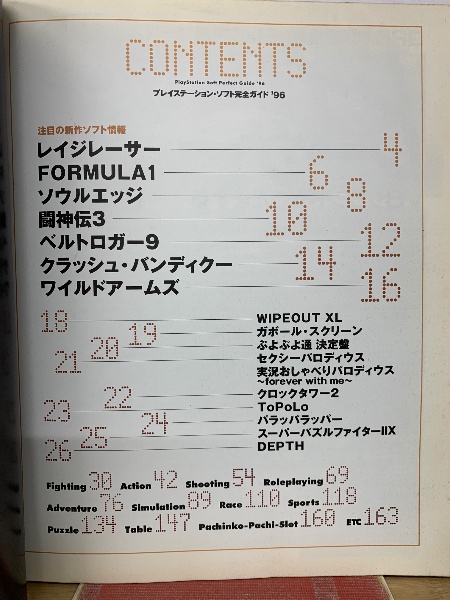 CONTENTS
PlayStation Soft Perfect Guide '96
プレイステーション・ソフト完全ガイド '96
注目の新作ソフト情報
レイジレーサー 4
FORMULA1 6
ソウルエッジ 8
闘神伝3 10
ベルトロガー9 12
クラッシュ・バンディクー 14
ワイルドアームズ 16
18 WIPEOUT XL
19 ガボール・スクリーン
20 ぷよぷよ通 決定盤
21 セクシーパロディウス
実況おしゃべりパロディウス
~forever with me~
22 クロックタワー2
23 ToPoLo
24 パラッパラッパー
25 スーパーパズルファイターIIX
26 DEPTH
Fighting 30 Action 42 Shooting 54 Roleplaying 69
Adventure 76 Simulation 89 Race 110 Sports 118
Puzzle 134 Table 147 Pachinko-Pachi-Slot 160 ETC 163